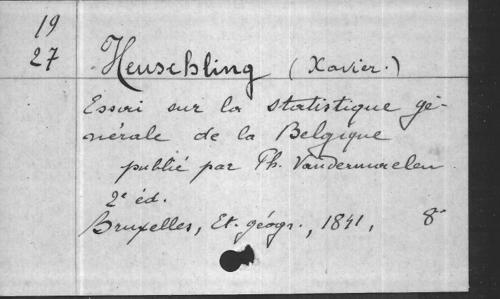 19
27
Heuschling (Xavier.)
Essai sur la statistique gé-
nérale de la Belgique
publié par Ph. Vandermaelen
2e éd.
Bruxelles, Et. géogr., 1841, 8°